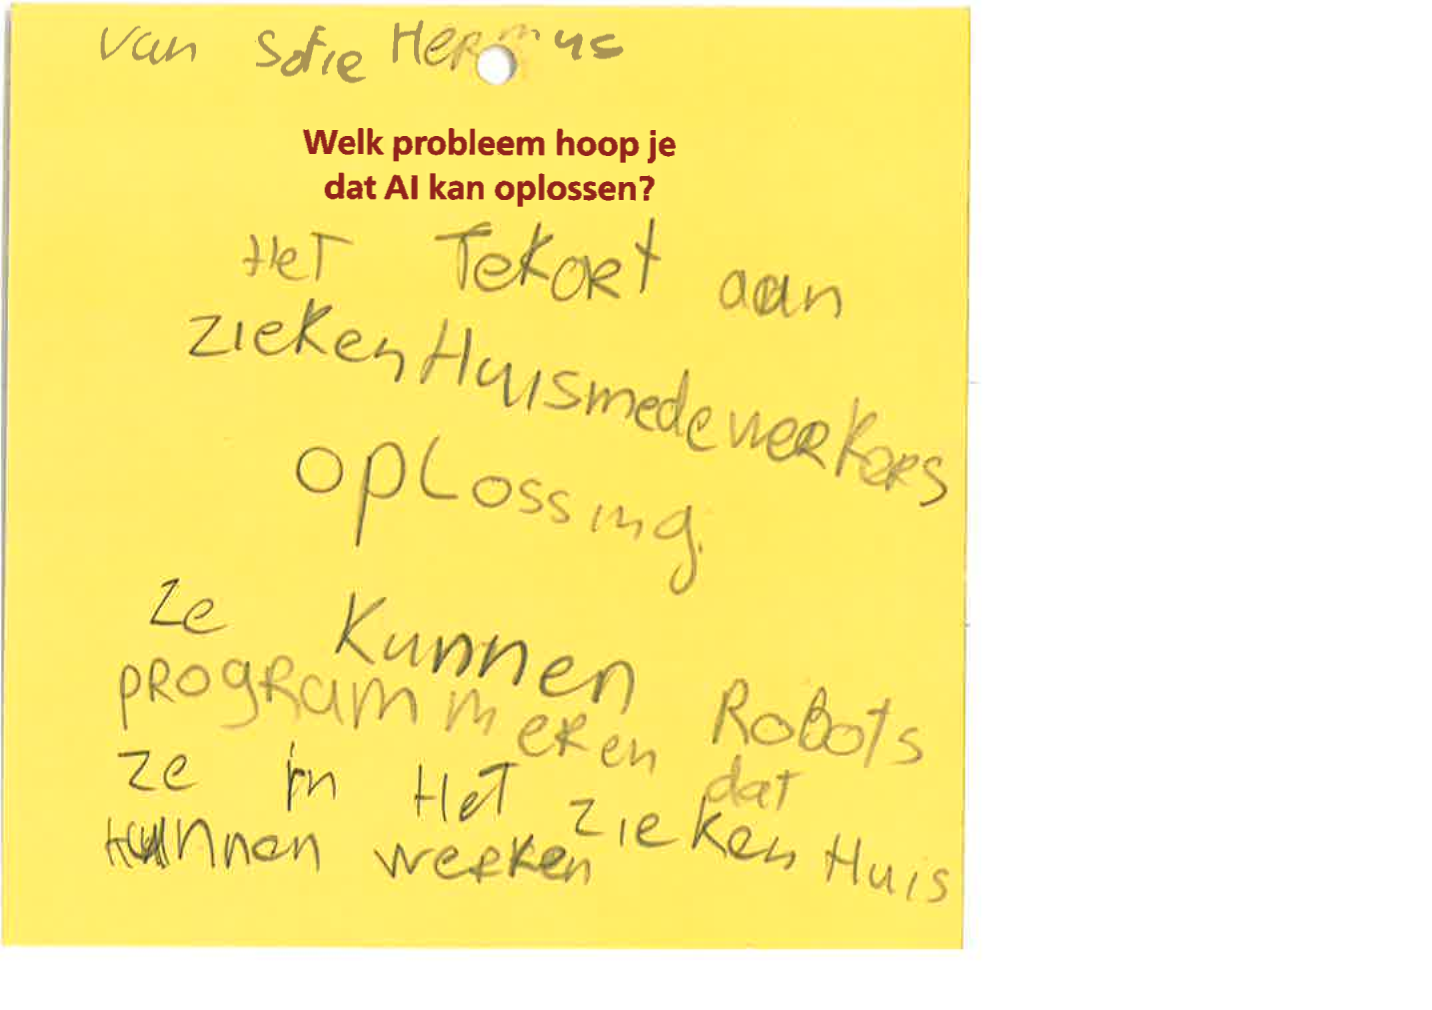 van Sofie Hermus
Welk probleem hoop je
dat AI kan oplossen?
Het Tekort aan
ziekenHuismedewerkers
opLossing.
Ze kunnen RoBots
pRogRammeren dat
ze in Het ziekenHuis
kunnen werken